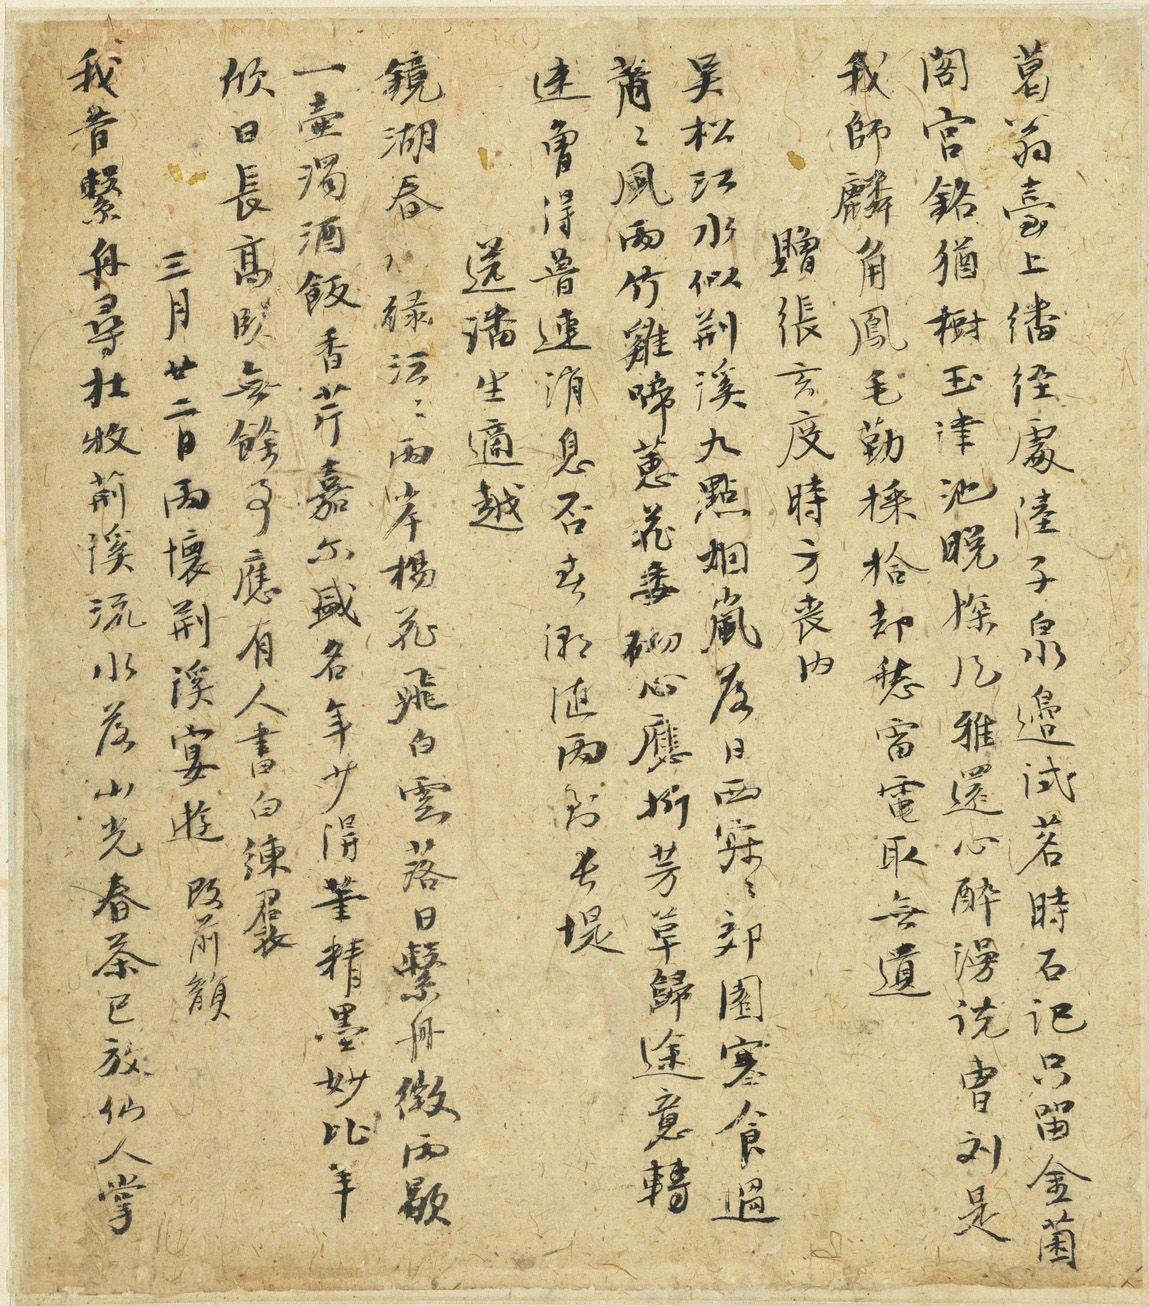 葛翁臺上繙經處陸子泉邊試茗時石記只留金菌
閣宮銘猶樹玉津池晚探風雅還心醉漫說曹劉是
我師麟角鳳毛勤採拾却愁雷電取無遺
贈張玄度時方喪內
吳松江水似荊溪九點烟嵐落日西寂〻郊園寒食過
蕭〻風雨竹雞啼蕙花委砌心應折芳草歸途意轉
迷會得普連消息否春潮隨雨到長堤
送潘生適越
鏡湖春水綠汪〻兩岸楊花飛白雲落日繫舟微雨歇
一壺濁酒飯香芹嘉尔盛名年少得筆精墨妙比羊
欣日長高臥無餘事應有人書白練裙
三月廿二日雨懷荊溪宴遊 改前韻
我昔繫舟尋杜牧荊溪流水落山光春茶已放仙人掌